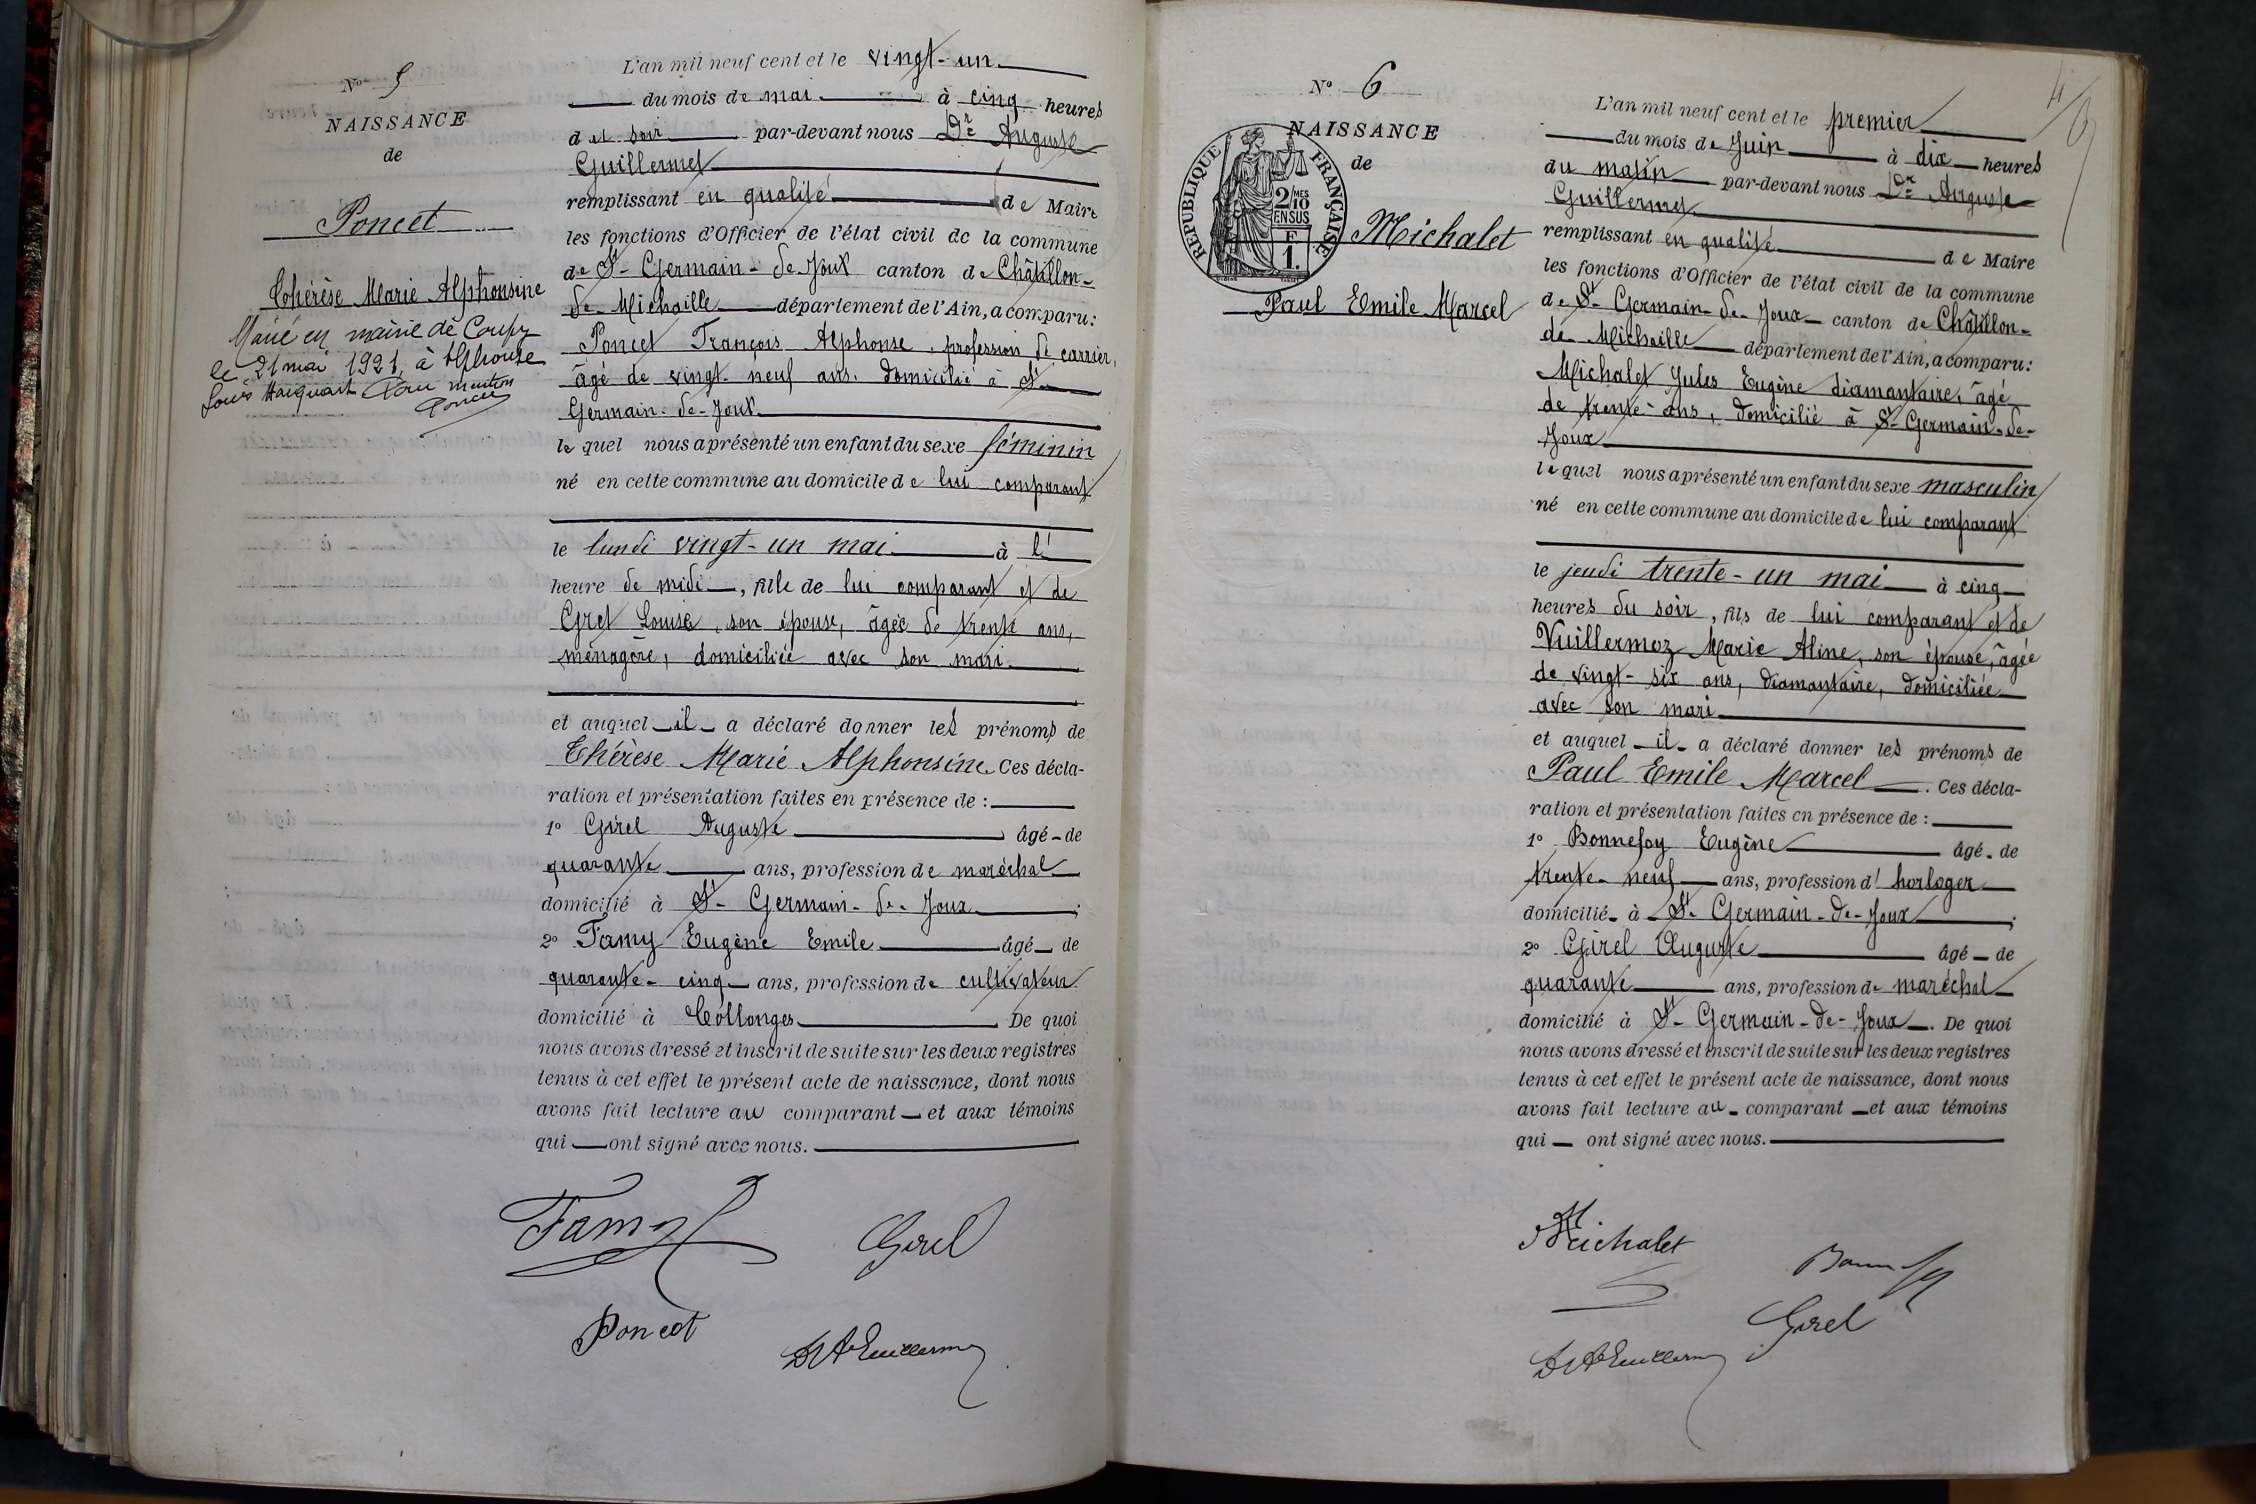 N° 5
NAISSANCE
de
Poncet
Thérèse Marie Alphonsine
Marié en mairie de Coupy
le 21 mai 1921, à Alphonse
Louis Hacquart
Poncet
L'an mil neuf cent et le vingt-un
du mois de mai à cinq heures
du soir par-devant nous Dr Auguste
Guillermet
remplissant en qualité de Maire
les fonctions d'Officier de l'état civil de la commune
de St-Germain-de-Joux canton de Châtillon-
de-Michaille département de l'Ain, a comparu:
Poncet François Alphonse, profession de carrier,
âgé de vingt-neuf ans, domicilié à St-
Germain-de-Joux
lequel nous a présenté un enfant du sexe féminin
né en cette commune au domicile de lui comparant
le lundi vingt-un mai à l'
heure de midi, fille de lui comparant et de
Gret Louise, son épouse, âgée de trente ans,
ménagère, domiciliée avec son mari
et auquel il a déclaré donner les prénoms de
Thérèse Marie Alphonsine. Ces décla-
ration et présentation faites en présence de :
1° Girel Auguste âgé de
quarante ans, profession de maréchal
domicilié à St-Germain-de-Joux ;
2° Famy Eugène Emile âgé de
quarante-cinq ans, profession de cultivateur
domicilié à Collonges De quoi
nous avons dressé et inscrit de suite sur les deux registres
tenus à cet effet le présent acte de naissance, dont nous
avons fait lecture au comparant et aux témoins
qui ont signé avec nous.
Famy Girel
Poncet Dr A Guillermet
N° 6
NAISSANCE
de
REPUBLIQUE FRANÇAISE
2/10 MES
EN SUS
F.
1.
Michalet
Paul Emile Marcel
4
L'an mil neuf cent et le premier
du mois de Juin à dix heures
du matin par-devant nous Dr Auguste
Guillermet
remplissant en qualité de Maire
les fonctions d'Officier de l'état civil de la commune
de St-Germain-de-Joux canton de Châtillon-
de-Michaille département de l'Ain, a comparu:
Michalet Jules Eugène diamantaire, âgé
de trente-ans, domicilié à St-Germain-de-
Joux
lequel nous a présenté un enfant du sexe masculin
né en cette commune au domicile de lui comparant
le jeudi trente-un mai à cinq
heures du soir, fils de lui comparant et de
Vuillermoz Marie Aline, son épouse, âgée
de vingt-six ans, diamantaire, domiciliée
avec son mari
et auquel il a déclaré donner les prénoms de
Paul Emile Marcel. Ces décla-
ration et présentation faites en présence de :
1° Bonnefoy Eugène âgé de
trente-neuf ans, profession d'horloger
domicilié à St-Germain-de-Joux ;
2° Girel Auguste âgé de
quarante ans, profession de maréchal
domicilié à St-Germain-de-Joux. De quoi
nous avons dressé et inscrit de suite sur les deux registres
tenus à cet effet le présent acte de naissance, dont nous
avons fait lecture au comparant et aux témoins
qui ont signé avec nous.
Michalet
Bonnefoy
Girel
Dr A Guillermet